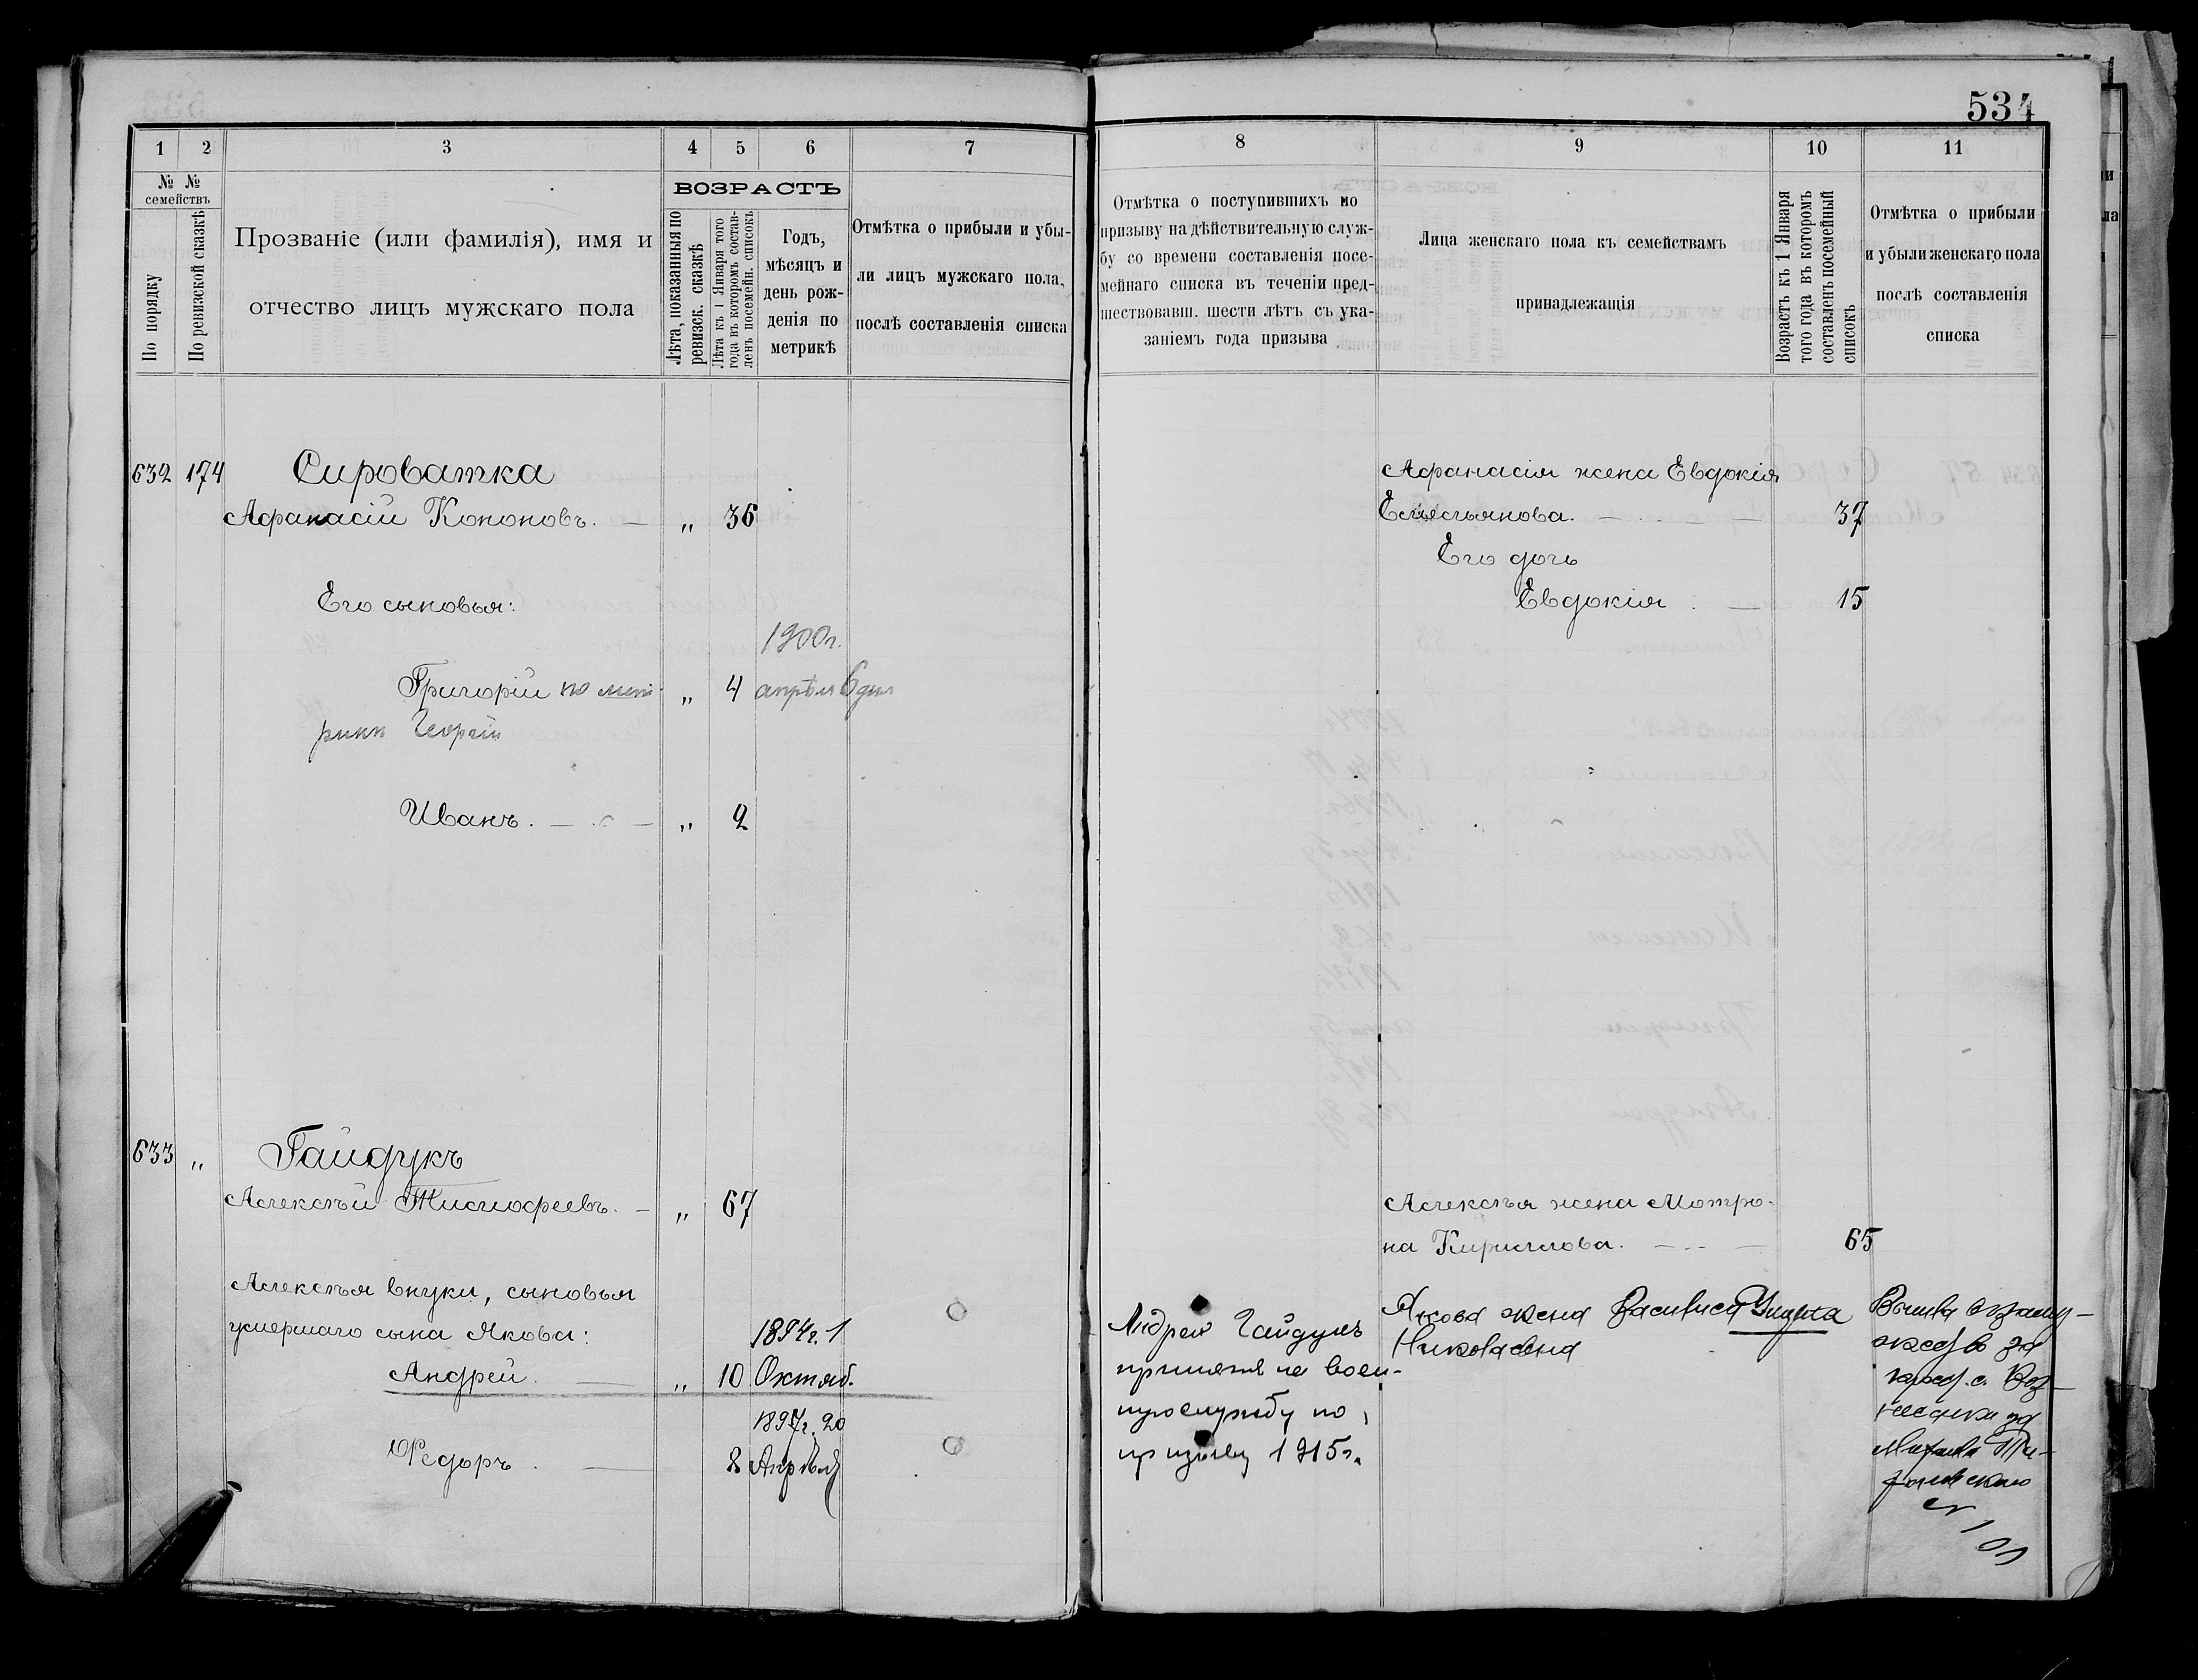 534
1 2 3 4 5 6 7
№ № семействъ
По порядку
По ревизской сказкѣ
Прозваніе (или фамилія), имя и
отчество лицъ мужскаго пола
ВОЗРАСТЪ
Лѣта, показанныя по
ревизск. сказкѣ
Лѣта къ 1 Января того
года въ которомъ состав-
ленъ посемейн. списокъ
Годъ,
мѣсяцъ и
день рож-
денія по
метрикѣ
Отмѣтка о прибыли и убы-
ли лицъ мужскаго пола,
послѣ составленія списка
632 174 Сироватка
Афанасій Кононовъ. — „ 36
Его сыновья:
1900г.
Григорій по мет- „ 4 апрѣля 6 дня
рики Георгій
Иванъ. — „ 2
633 „ Гайдукъ
Алексѣй Тимофеевъ. — „ 67
Алексѣя внуки, сыновья
умершаго сына Якова: 1894г. 1
Андрей. — „ 10 Октяб.
1897г. 20
Федоръ. — 8 Апрѣля
8 9 10 11
Отмѣтка о поступившихъ по
призыву на дѣйствительную служ-
бу со времени составленія посе-
мейнаго списка въ теченіи пред-
шествовавш. шести лѣтъ съ ука-
заніемъ года призыва
Лица женскаго пола къ семействамъ
принадлежащія
Возрастъ къ 1 Января
того года въ которомъ
составленъ посемейный
списокъ
Отмѣтка о прибыли
и убыли женскаго пола
послѣ составленія
списка
Афанасія жена Евдокія
Емельянова. — 37
Его дочь
Евдокія — 15
Алексѣя жена Мотро-
на Кириллова. — 65
Андрей Гайдукъ
принятъ на воен-
ную службу по
призыву 1915г.
Якова жена Василиса
Николаевна
Вышла въ заму-
жество за
№ 101